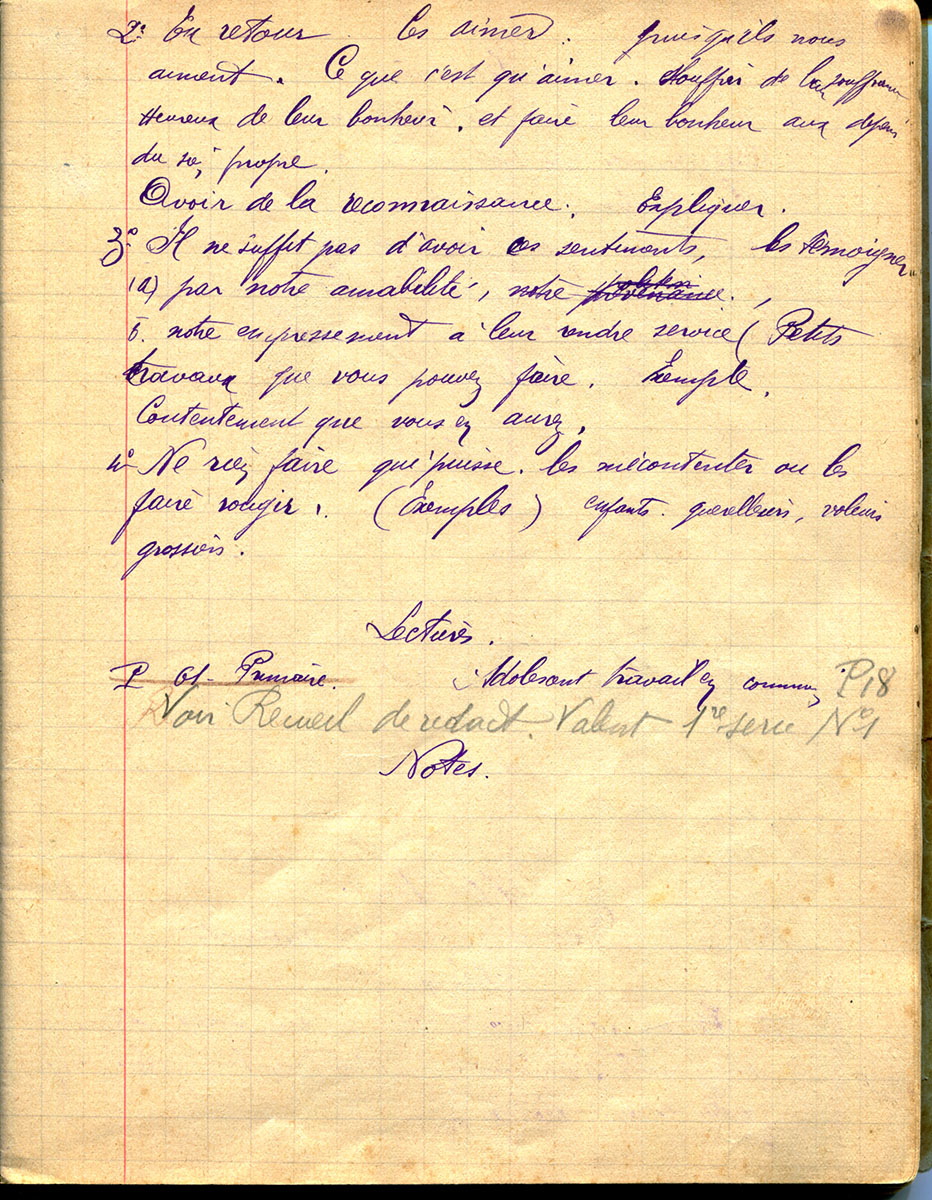 2° En retour. Les aimer. puisqu'ils nous
aiment. Ce que c'est qu'aimer. Souffrir de leur souffrance
Heureux de leur bonheur, et faire leur bonheur aux dépens
du sien propre.
Avoir de la reconnaissance. Expliquer.
3° Il ne suffit pas d'avoir ces sentiments, les témoigner
(a) par notre amabilité, notre
b. notre empressement à leur rendre service (Petits
travaux que vous pouvez faire. Exemple.
Contentement que vous en aurez.
4° Ne rien faire qui puisse les mécontenter ou les
faire rougir. (Exemples) enfants querelleurs, voleurs
grossiers.
Lectures.
P 61 - Primaire. Adolescent travail en commun P18
Voir Recueil de redact. 1re serie N°1
Notes.